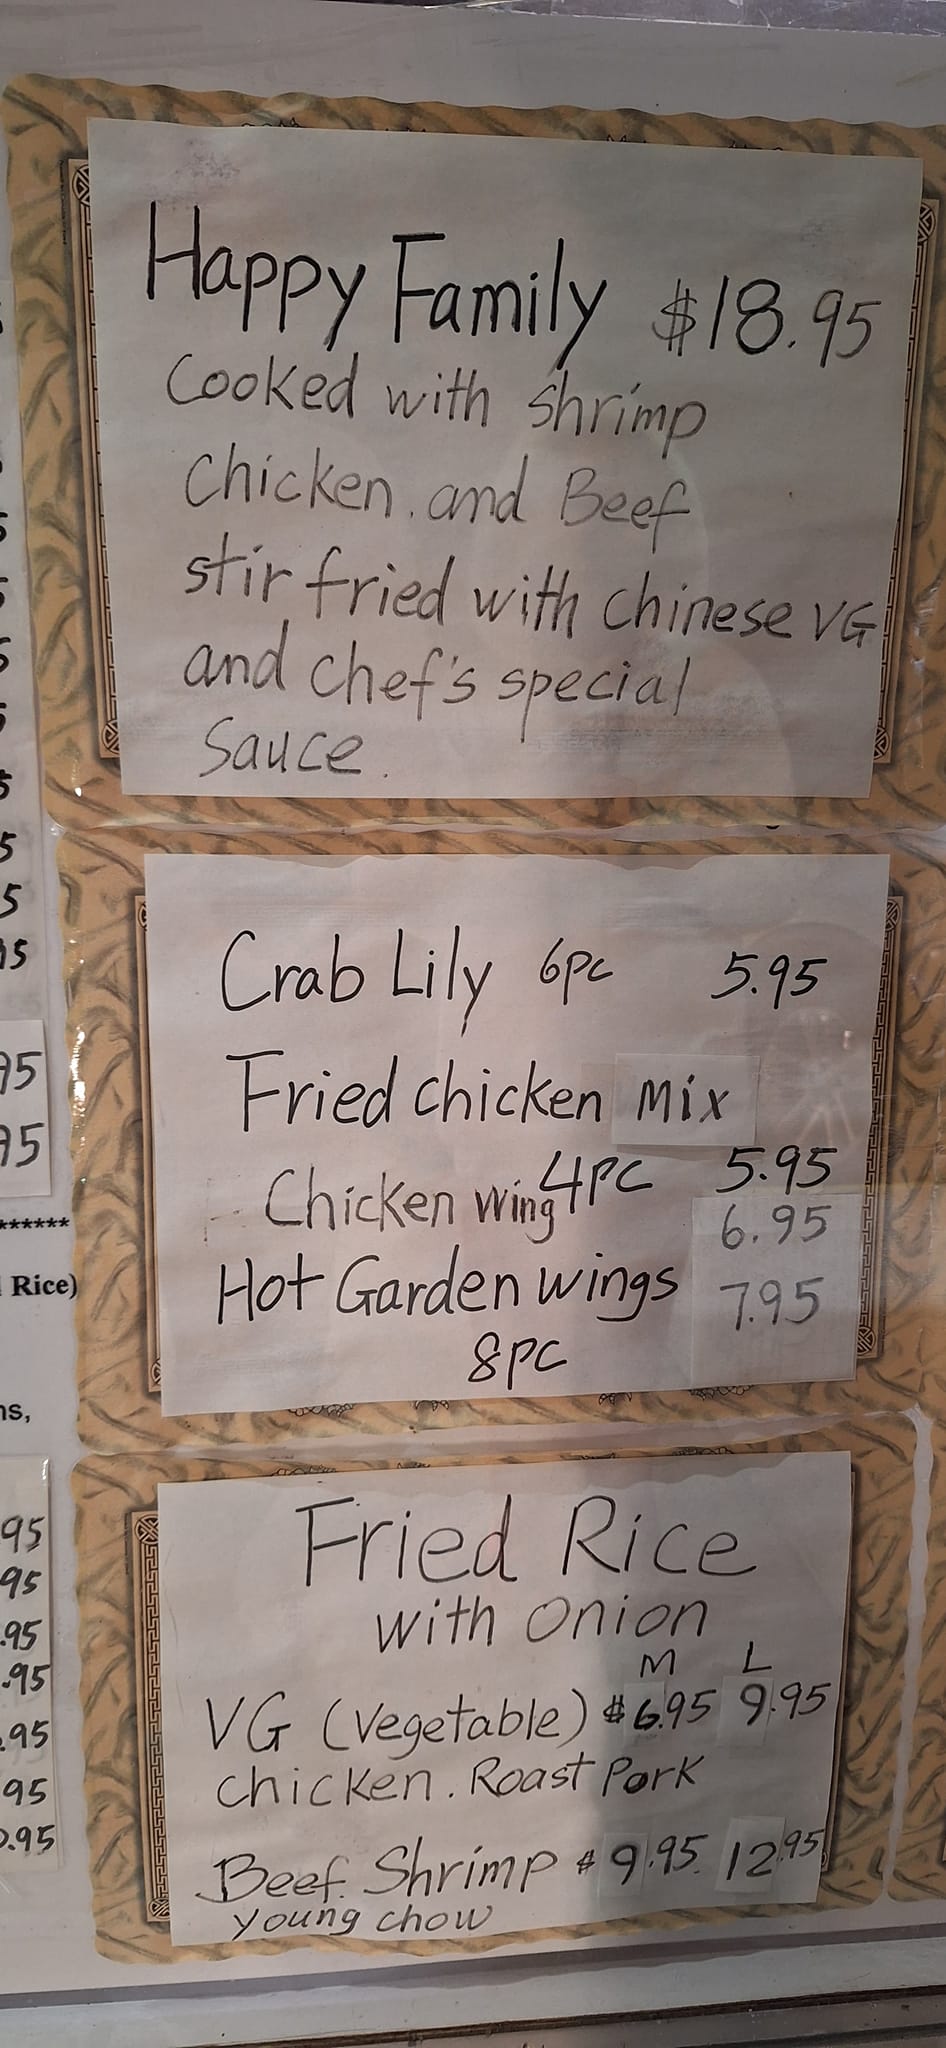 Happy Family $18.95
Cooked with Shrimp
Chicken. and Beef
stir fried with Chinese VG
and Chef's special
Sauce.
Crab Lily 6pc 5.95
Fried Chicken Mix
4PC 5.95
Chicken wing 6.95
Hot Garden wings 7.95
8PC
Fried Rice
with Onion
M L
VG (Vegetable) $6.95 9.95
Chicken. Roast Pork
Beef. Shrimp $9.95. 12.95
young chow
5
5
15
95
95
******
Rice)
ns,
95
95
.95
.95
.95
95
0.95